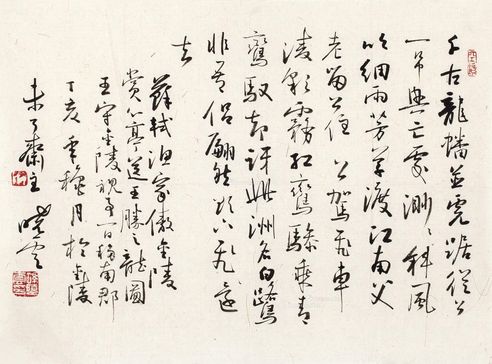 千古龍蟠並虎踞從公
一吊興亡處渺渺斜風
吹細雨芳草渡江南父
老留公住公駕飛車
凌彩霧紅鸞驂乘青
鸞馭却訝此洲名白鷺
非吾侶翩然欲下飛還
去
蘇軾漁家傲金陵
賞心亭送王勝之龍圖
王守金陵視事一日移南郡
丁亥穐月於金陵
未了齋主曉雲